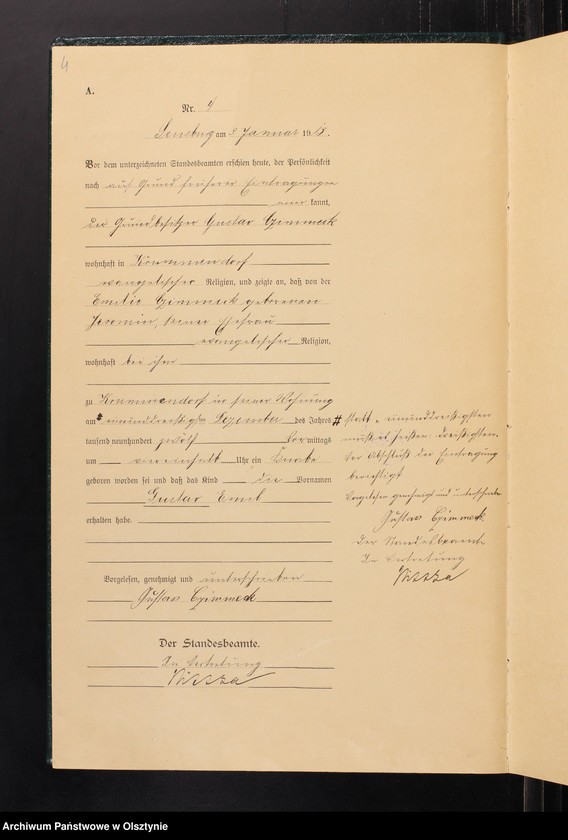 4
A.
Nr. 4
Sensburg am 2 Januar 1913.
Vor dem unterzeichneten Standesbeamten erschien heute, der Persönlichkeit
nach auf Grund früherer Eintragungen
kannt,
der Grundbesitzer Gustav Czimmeck
wohnhaft in Krummendorf
evangelischer Religion, und zeigte an, daß von der
Emilie Czimmeck geborenen
Jeromin, seiner Ehefrau
evangelischer Religion,
wohnhaft bei ihm
zu Krummendorf in seiner Wohnung
am # einunddreißigsten Dezember des Jahres
tausend neunhundert zwölf vormittags
um Uhr ein Knabe
geboren worden sei und daß das Kind die Vornamen
Gustav Emil
erhalten habe.
Vorgelesen, genehmigt und unterschrieben
Gustav Czimmeck
Der Standesbeamte.
In Vertretung
# statt „einunddreißigsten
muß es heißen: dreißigsten.
Vor Abschluß der Eintragung
berichtigt
Vorgelesen genehmigt und unterschrieben
Gustav Czimmeck
Der Standesbeamte
In Vertretung
Archiwum Państwowe w Olsztynie